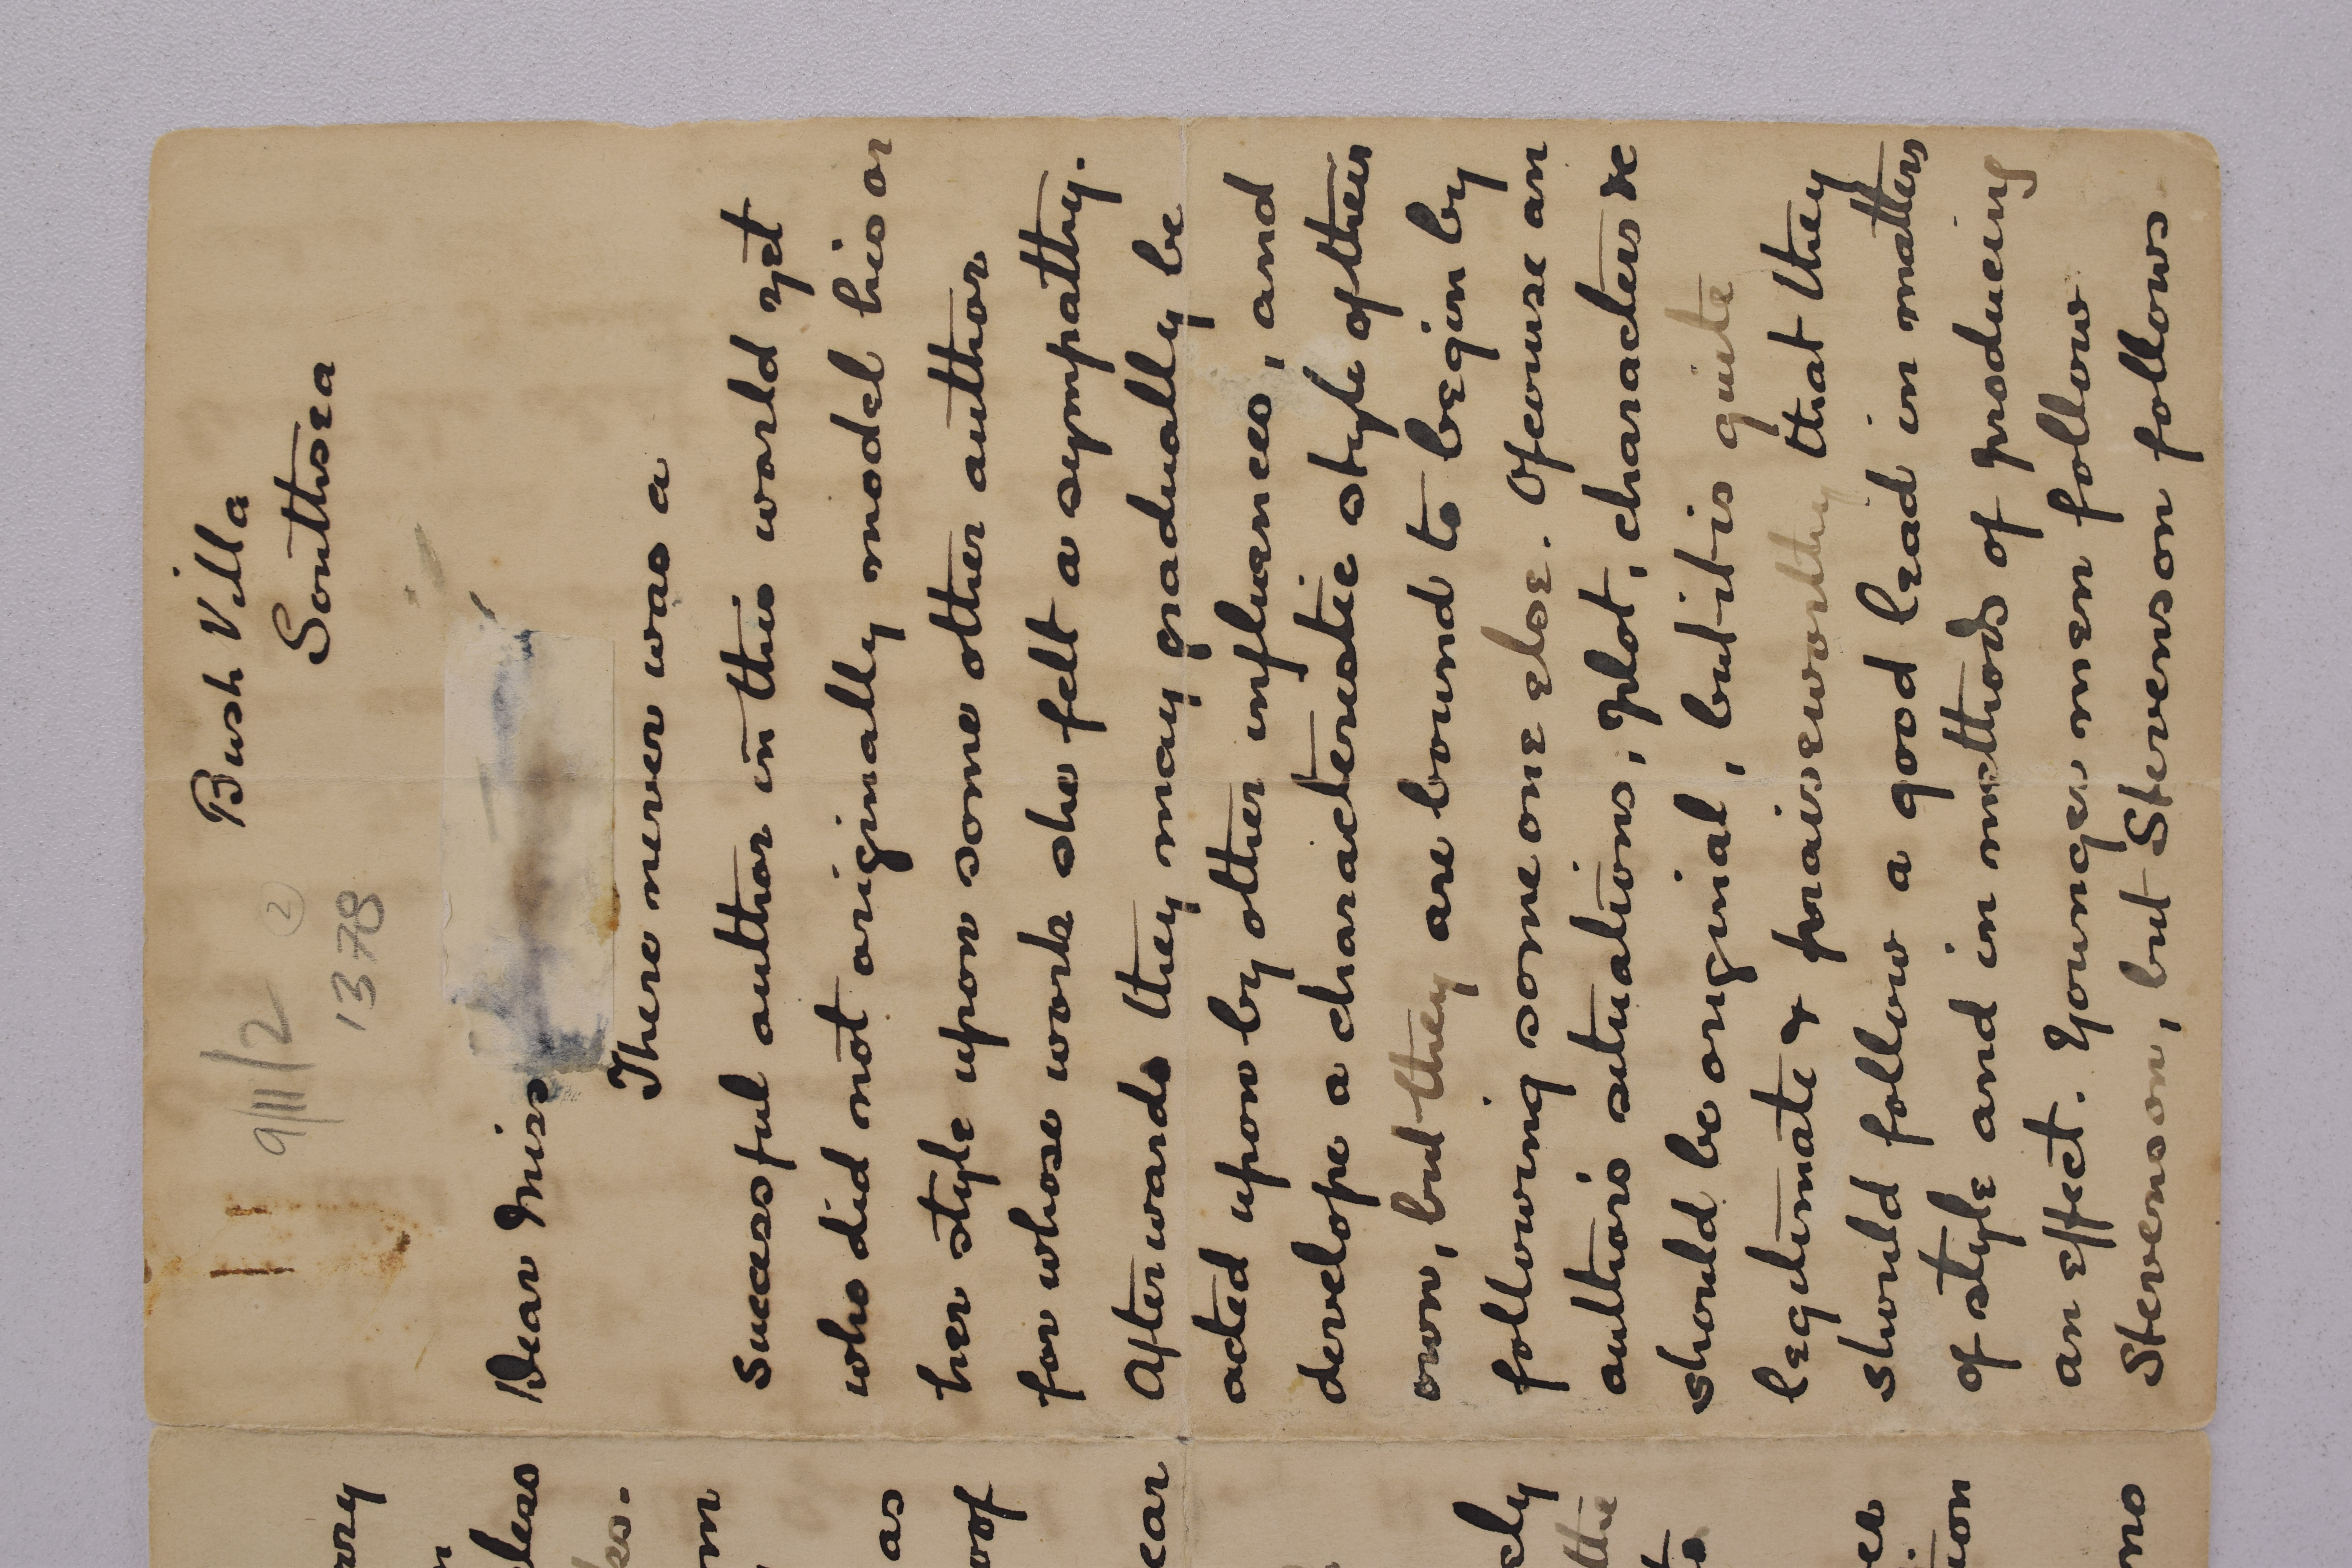 Bush Villa
Southsea
9/11/2
2
1378
Dear Miss
There never was a
successful author in this world yet
who did not originally model his or
her style upon some other author
for whose work she felt a sympathy.
Afterwards they may gradually be
acted upon by other influences, and
develope a characteristic style of their
own, but they are bound to begin by
following someone else. Of course an
author's situations, plot, characters &c
should be original, but it is quite
legitimate & praiseworthy that they
should follow a good lead in matters
of style and in methods of producing
an effect. Younger men follow
Stevenson, but Stevenson follows
as
oof
ear
ely